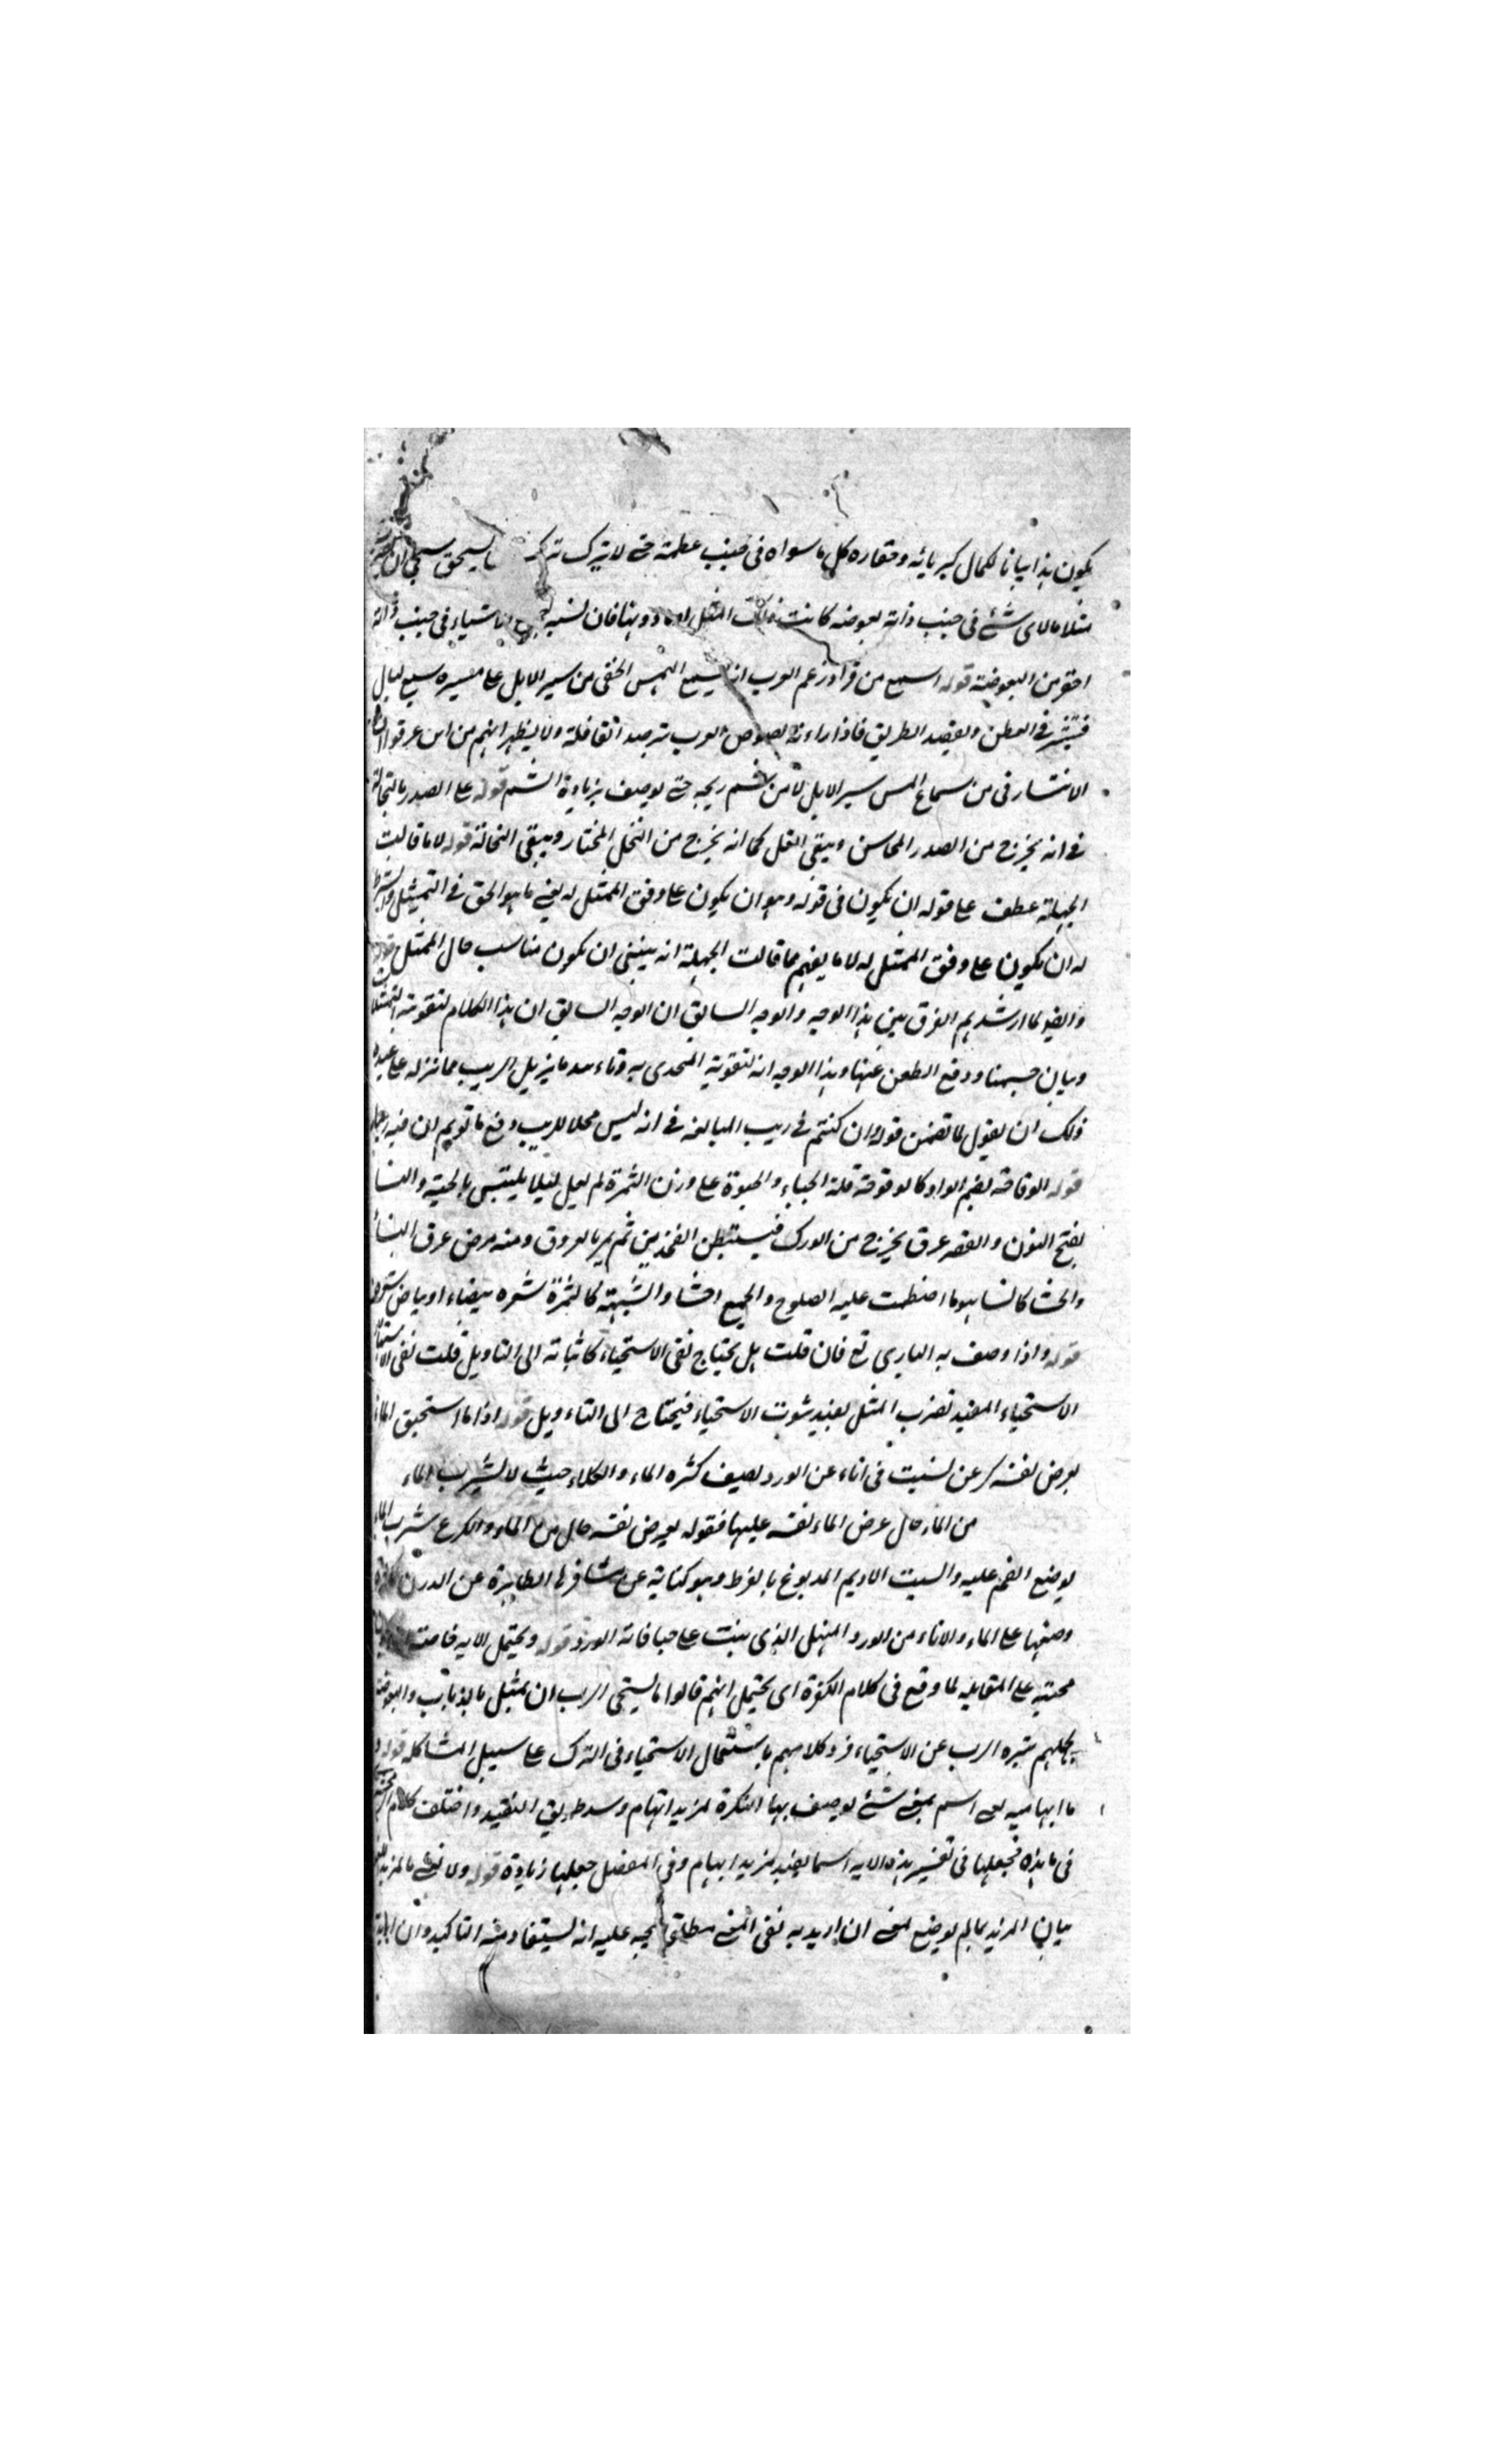 يكون هذا بيانا لكمال كبريائه وحقاره كل ما سواه فى جنب عظمته حتى لا يترك تركه ما يستحق يستحيى ان
مثلا ما لاى شئ فى جنب ذاته بعوضه كانت فذلك المثل او ما دونها فان نسبه جميع الاشياء فى جنب ذاته
احقر من البعوضة قوله اسمع من قراد زعم العرب انه يسمع الهمس الخفى من سير الابل على مسيره سبع ليال
فينتشر فى العطن ويقصد الطريق فاذا راءته لصوص العرب ترصد القافلة ولا يظهر انهم من اين عرفوا ان
الانتشار فى من سماع الهمس سير الابل لا من شم ريحه حتى يوصف بزيادة الشم قوله على الصدر بالنخالة
فى انه يخرج من الصدر المحاسن ويبقى الغل كما انه يخرج من النخل المختار ويبقى النخالة قوله لا ما قالت
الجهلة عطف على قوله ان يكون فى قوله وهو ان يكون على وفق الممثل له يعنى ما هو الحق فى التمثيل والشرط
له ان يكون على وفق الممثل له لا ما يفهم مما قالت الجهلة انه ينبغى ان يكون مناسب حال الممثل قوله
وايضا لما ارشدهم الفرق بين هذا الوجه والوجه السابق ان الوجه السابق ان هذا الكلام لتقوية التمثيلات
وبيان حسنها ودفع الطعن عنها وهذا الوجه انه لتقوية المتحدى به وثناء بعد ما يزيل الريب مما نزله على عبده
ذلك ان يقول لما تضمن قوله وان كنتم فى ريب المبالغه فى انه ليس محلا للريب دفع ما توهم ان فيه ريبا
قوله الوقاحة بضم الواو كالوقوحة قلة الحياء والحيوة على وزن الثمرة لم يعل لئلا يلتبس بالحية والنسا
بفتح النون والقصر عرق يخرج من الورك فيستبطن الفخذين ثم يمر بالعرقوب ومنه مرض عرق النسا
والحشا كالنسا هو ما اضطمت عليه الضلوع والجمع احشا والشهبة كالثمرة شعره بيضاء او بياض
قوله واذا وصف به البارى تع فان قلت هل يحتاج نفى الاستحياء كاثباته الى التاويل قلت نفى
الاستحياء المقيد بضرب المثل يفيد ثبوت الاستحياء فيحتاج الى التاءويل قوله اذا ما استحين الماء
يعرض نفسه كرعن بسبت فى اناء من الورد يصف كثره الماء والكلاء حيث لا يشرب الماء
من الماء حال عرض الماء نفسه عليها فقوله يعرض نفسه حال من الماء والكرع شرب الماء
بوضع الفم عليه والسبت الاديم المدبوغ بالقرظ وهو كناية عن مشافرها الطاهرة عن الدرن
وضعها على الماء والاناء من الورد المنهل الذى ينبت على حافاته الورد قوله ويحتمل الايه خاصة
مجيئه على المقابله لما وقع فى كلام الكفرة اى يحتمل انهم قالوا ما يستحى الرب ان يمثل بالذباب والبعوضة
بجهلهم تنزه الرب عن الاستحياء فرد كلامهم باستعمال الاستحياء فى الترك على سبيل المشاكله قوله
ما ابهاميه هى اسم بمعنى شئ يوصف بها النكرة لمزيد ابهام وسد طريق التقييد واختلف كلام
فى ما هذه فجعلها فى تفسير هذه الايه اسما يفيد مزيد ابهام وفى المفصل جعلها زيادة قوله ولا نعنى بالمزيد
بيان المزيد بما لم يوضع لمعنى ان اريد به نفى المعنى مطلقا يتجه عليه انه يستفاد منه التاكيد وان